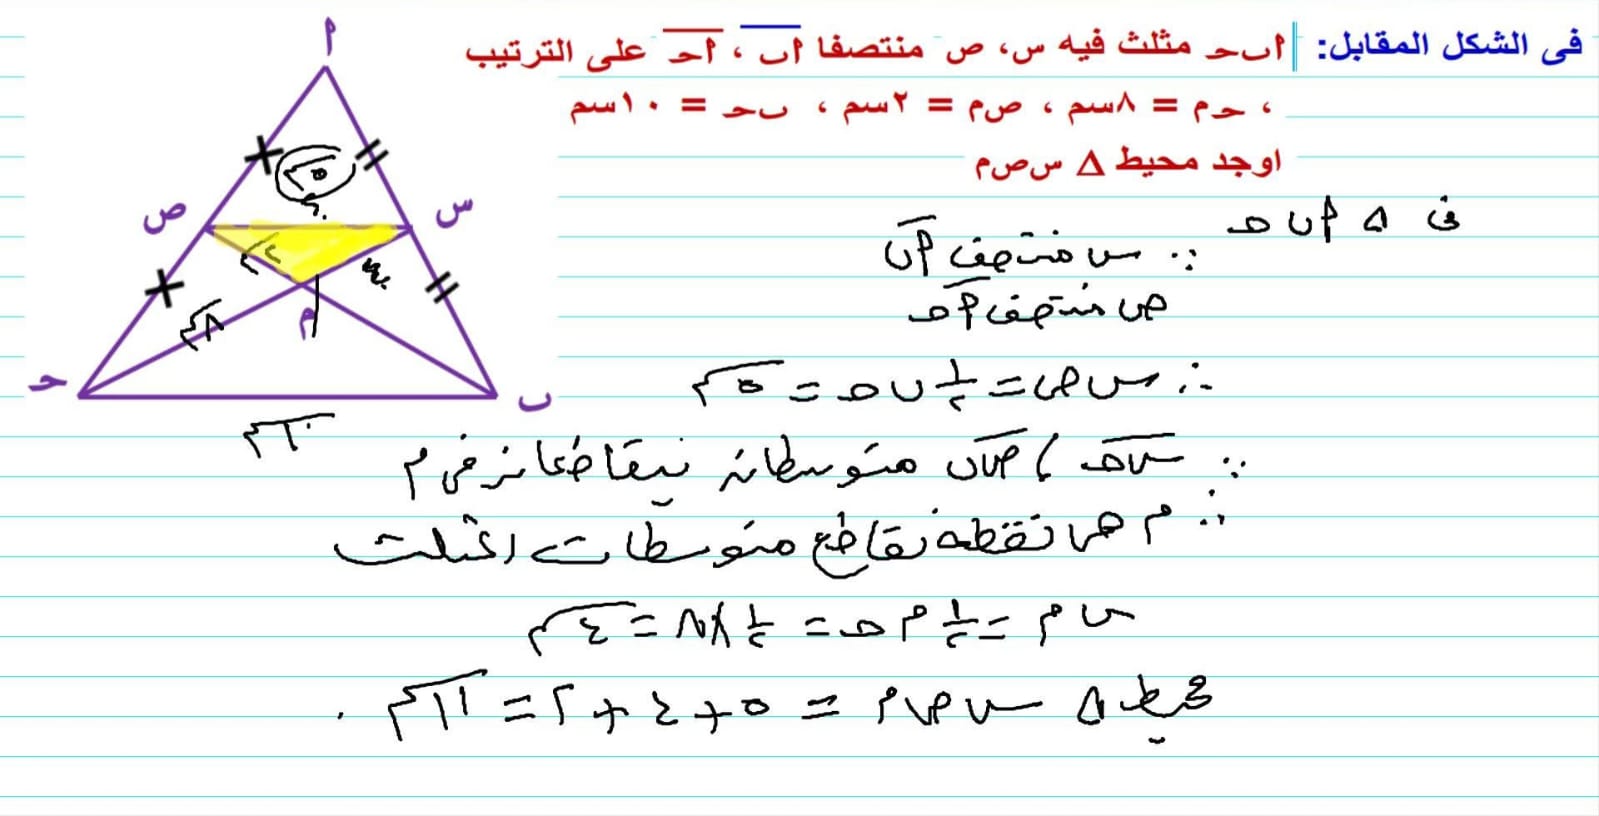 فى الشكل المقابل: ا ب حـ مثلث فيه س، ص منتصفا ا ب ، ا حـ على الترتيب
، حـ م = ٨سم ، ص م = ٢سم ، ب حـ = ١٠سم
اوجد محيط Δ س ص م
فى Δ ا ب حـ
∵ س منتصف ا ب
ص منتصف ا حـ
∴ س ص = ١/٢ ب حـ = ٥سم
∵ س حـ ، ص ب متوسطان يتقاطعان فى م
∴ م هى نقطة تقاطع متوسطات المثلث
س م = ١/٢ م حـ = ١/٢ × ٨ = ٤سم
محيط Δ س ص م = ٥ + ٤ + ٢ = ١١سم
ا
٥سم
ص
س
٢سم
٨سم
م
حـ
ب
١٠سم